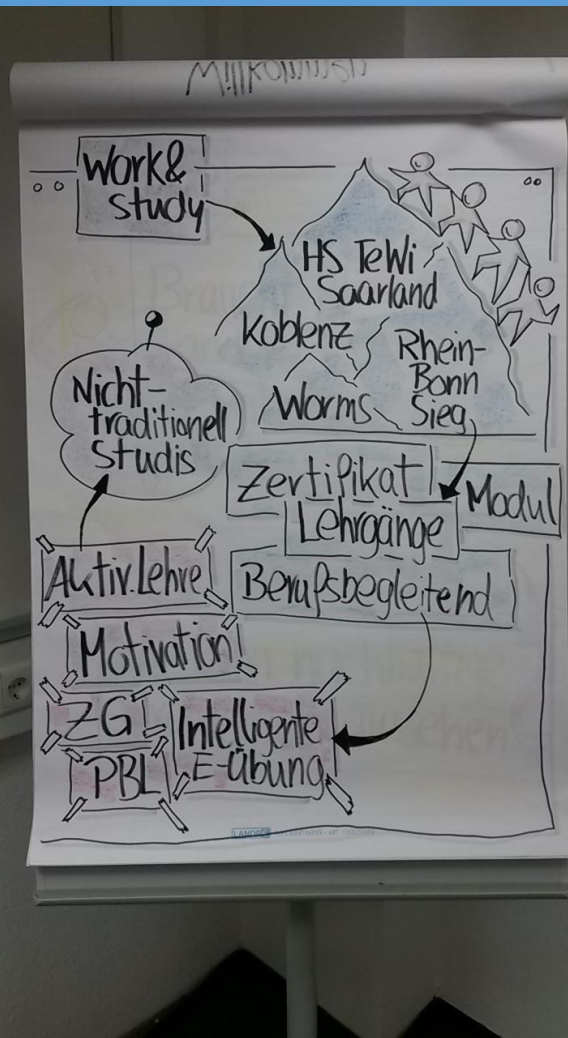 Willkommen
Work&
study
HS TeWi
Saarland
Koblenz
Rhein-
Bonn
Sieg
Worms
Nicht-
traditionell
Studis
Zertifikat
Lehrgänge
Modul
Berufsbegleitend
Aktiv.Lehre
Motivation
ZG
PBL
Intelligente
E-Übung